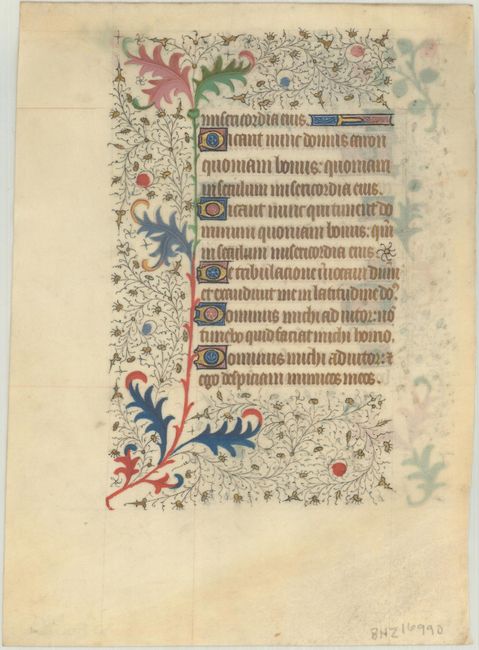 misericordia eius.
Dicant nunc domus aaron
quoniam bonus: quoniam
in seculum misericordia eius.
Dicant nunc qui timent do
minum quoniam bonus: qm̄
in seculum misericordia eius
De tribulacione īuocaui dnm̄
et exaudiuit me in latitudine do⁹.
Dominus michi adiutor: nō
timebo quid faciat michi homo.
Dominus michi adiutor: ⁊
ego despiciam inimicos meos.
BHZ16990